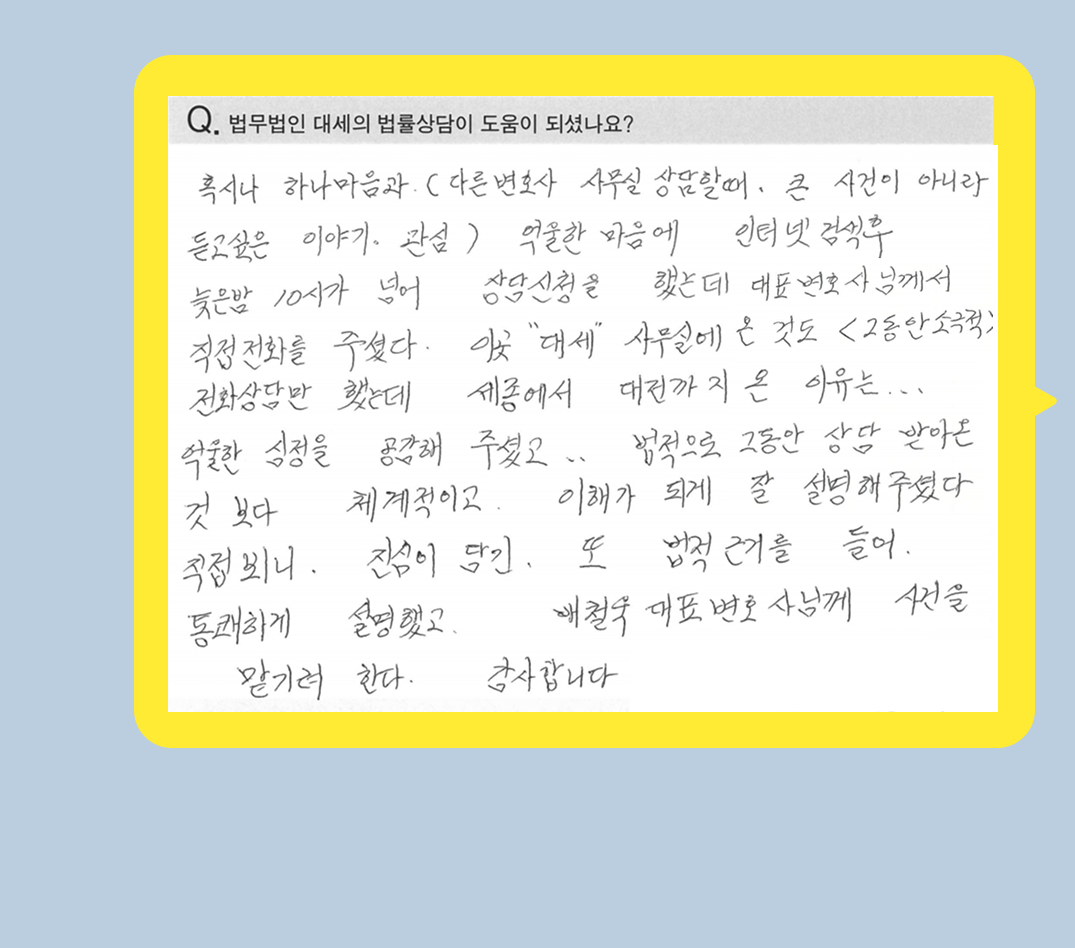 Q. 법무법인 대세의 법률상담이 도움이 되셨나요?
혹시나 하나마음과. ( 다른변호사 사무실 상담할때. 큰 사건이 아니라
듣고싶은 이야기. 관심 ) 억울한 마음에 인터넷 검색후
늦은밤 10시가 넘어 상담신청을 했는데 대표변호사님께서
직접전화를 주셨다. 이곳 "대세" 사무실에 온 것도 <그동안소극적>
전화상담만 했는데 세종에서 대전까지 온 이유는...
억울한 심정을 공감해 주셨고.. 법적으로 그동안 상담 받아온
것 보다 체계적이고. 이해가 되게 잘 설명해주셨다
직접뵈니. 진심이 담긴. 또 법적근거를 들어.
통쾌하게 설명했고. 배철욱 대표변호사님께 사건을
맡기려 한다. 감사합니다